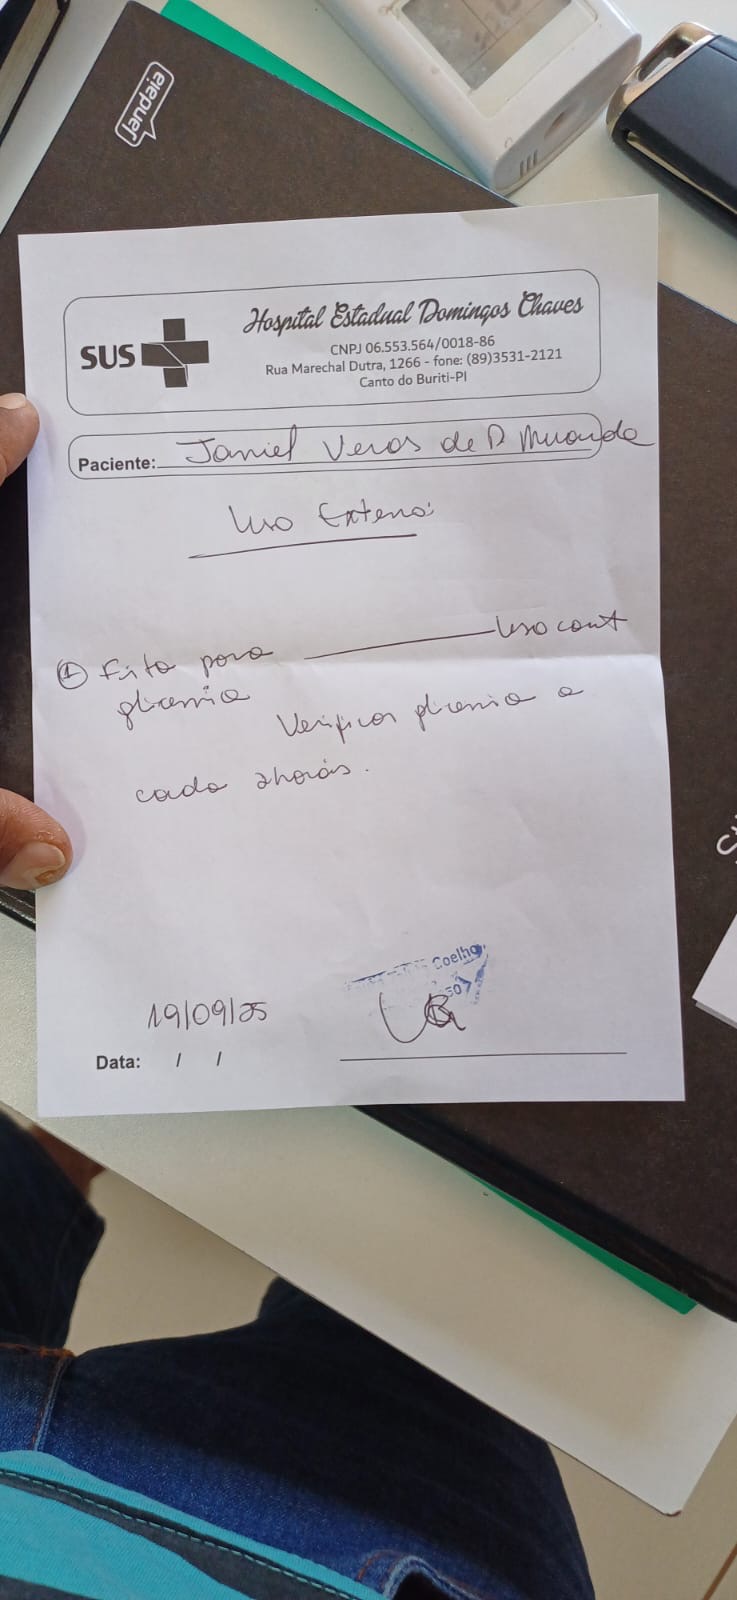 Jandaia
SUS
Hospital Estadual Domingos Chaves
CNPJ 06.553.564/0018-86
Rua Marechal Dutra, 1266 - fone: (89)3531-2121
Canto do Buriti-PI
Paciente: Janiel Veras de D Miranda
Uso Externo:
1 Fita para Uso cont
glicemia
Verificar glicemia a
cada 2horas.
Coelho
19/09/25
Data: / /